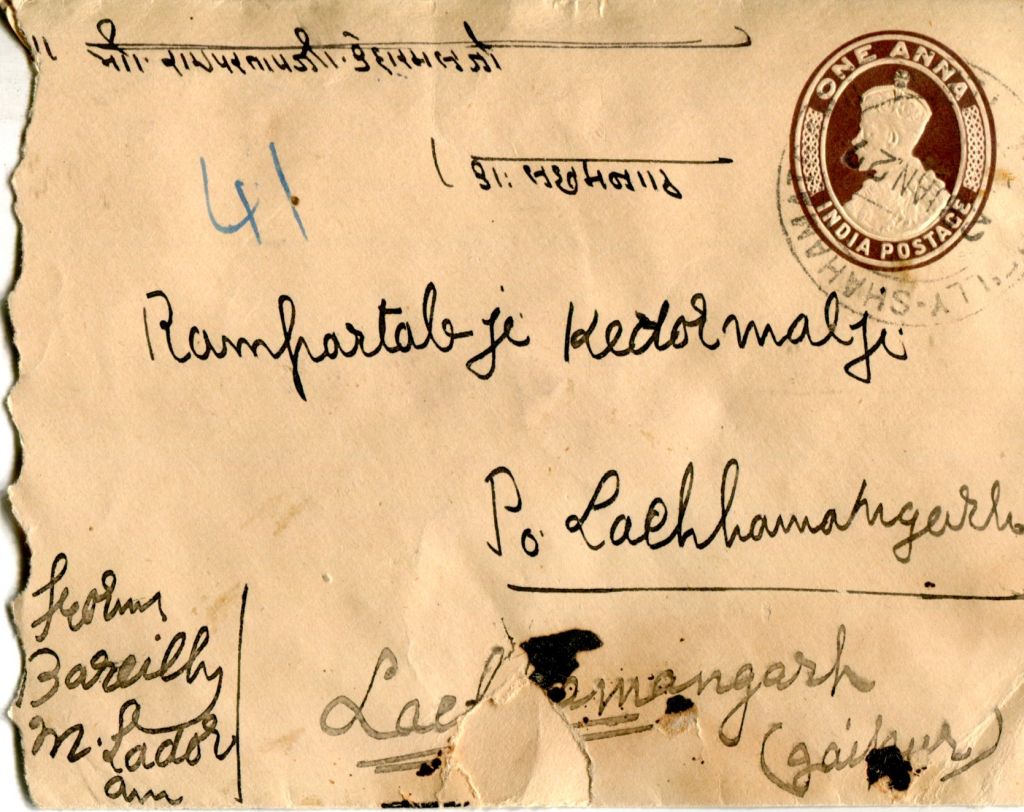 श्री। रामपरतापजी। केदारमलजी
ONE ANNA
INDIA POSTAGE
41
Rampartabji Kedormalji
Po. Lachhamangarh
From
Bareilly
M. Lador
am
Lachhamangarh
(Jaipur)